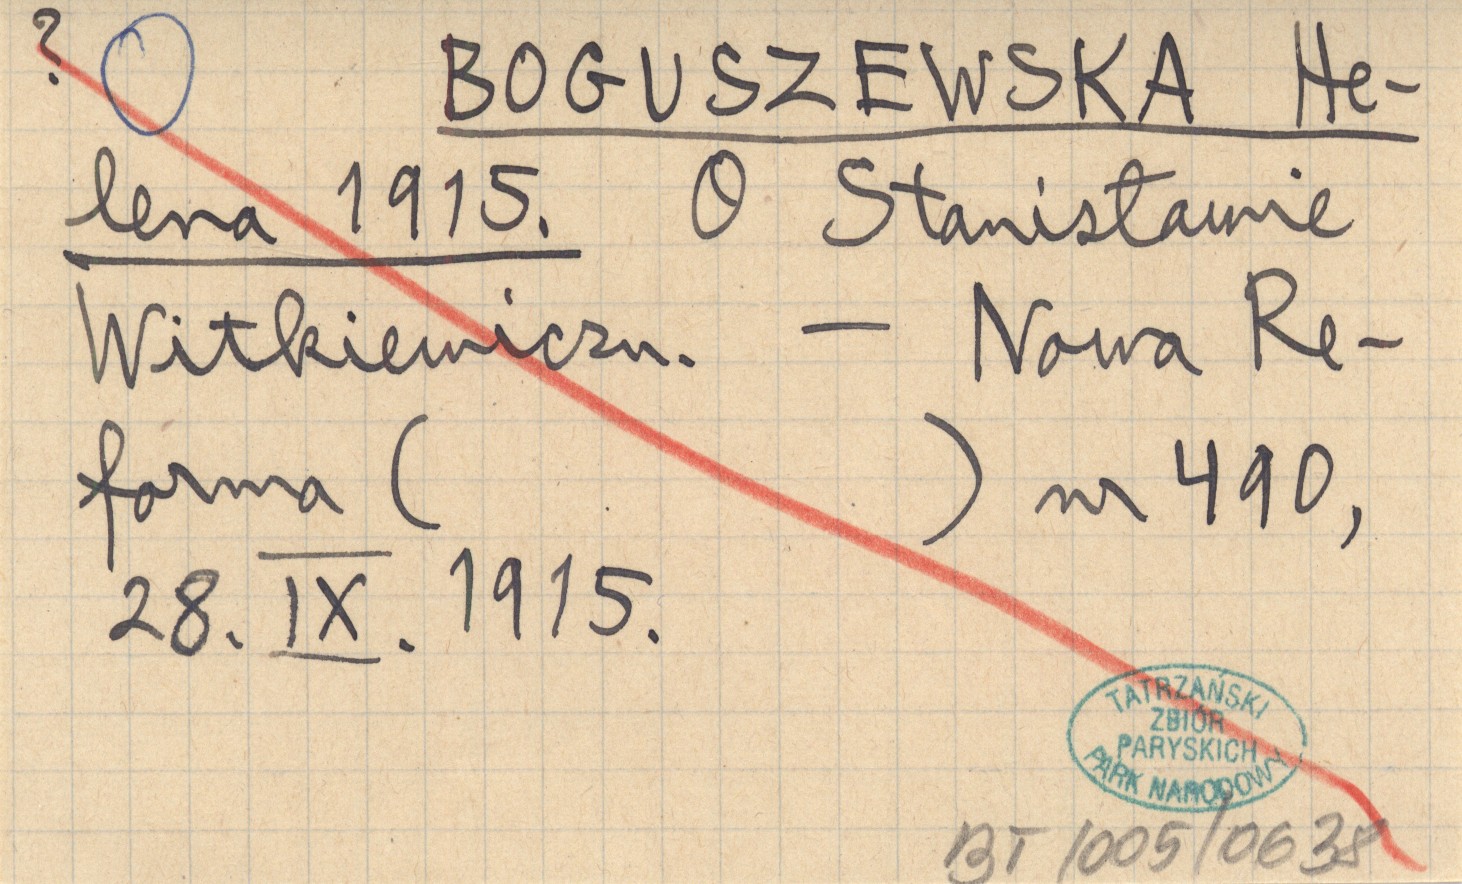 ? BOGUSZEWSKA He-
lena 1915. O Stanisławie
Witkiewiczu. — Nowa Re-
forma ( ) nr 490,
28. IX. 1915.
TATRZAŃSKI
ZBIÓR
PARYSKICH
PARK NARODOWY
BT/005/0638